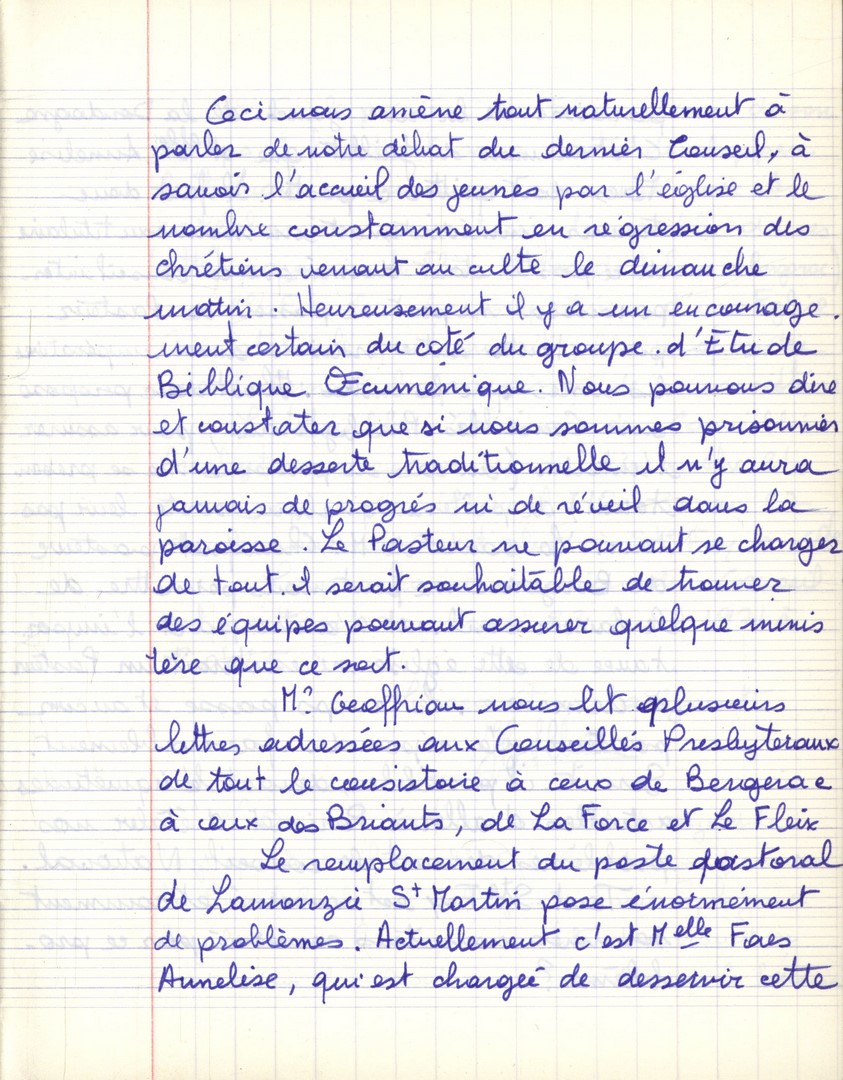 Ceci nous amène tout naturellement à
parler de notre débat du dernier Conseil, à
savoir l'accueil des jeunes par l'église et le
nombre constamment en régression des
chrétiens venant au culte le dimanche
matin. Heureusement il y a un encourage.
ment certain du coté du groupe. d'Etude
Biblique Œcuménique. Nous pouvons dire
et constater que si nous sommes prisonniers
d'une desserte traditionnelle il n'y aura
jamais de progrés ni de réveil dans la
paroisse. Le Pasteur ne pouvant se charger
de tout. il serait souhaitable de trouver
des équipes pouvant assurer quelque minis
tère que ce soit.
Mr Geoffriau nous lit plusieurs
lettres adressées aux Conseillés Presbyteraux
de tout le consistoire à ceux de Bergerac
à ceux des Briants, de La Force et Le Fleix
Le remplacement du poste pastoral
de Lamonzie St Martin pose énormément
de problèmes. Actuellement c'est Melle Faes
Annelise, qui est chargée de desservir cette